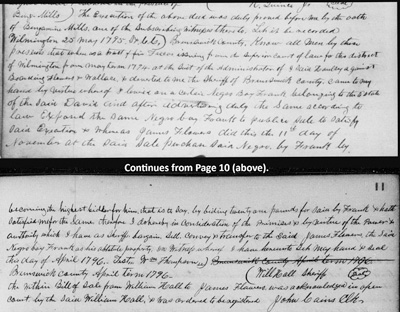 Benj. Mills) The Execution of the above deed was duly proved before me by the oath
of Benjamin Mills, one of the Subscribing Witnesses thereto. Let it be recorded
Wilmington 23 May 1795. Brunswick County, Know all Men by these
presents that when as a writ of fieri Facias issuing from the Superior Court of law for the district
of Wilmington from May term 1794. at the Suit of the administrators of David against
Brandeng Flowers & Wallace, & directed to me the Sheriff of Brunswick County came to my
hand by virtue whereof I levied on a certain Negro Boy Frank belonging to the Estate
of the Said David and after advertising duly the Same according to
law Expose the Same Negro boy Frank to publick Sale to Satisfy
Said Execution & Whereas James Flowers did this the 11th day of
November at the Said Sale purchase Said Negro boy Frank by
Continues from Page 10 (above).
11
becoming the highest bidder for him, that is to Say, by bidding twenty one pounds for Said boy Frank & hath
Satisfied me for the Same therefore I do hereby in Consideration of the Premises & by virtue of the Power &
authority which I have as Sheriff bargain Sell Convey & transfer to the Said James Flowers the Said
Negro boy Frank as his absolute property. In Witness whereof I have hereunto Set my hand & Seal
this day of April 1796. Teste Wm Thompson) Brunswick County April term 1796
Brunswick County April term 1796. (Will Hall Sheriff (Seal)
the Within Bill of Sale from William Hall to James Flowers was acknowledged in open
Court by the Said William Hall, & was ordered to be registered John Cains Clk.